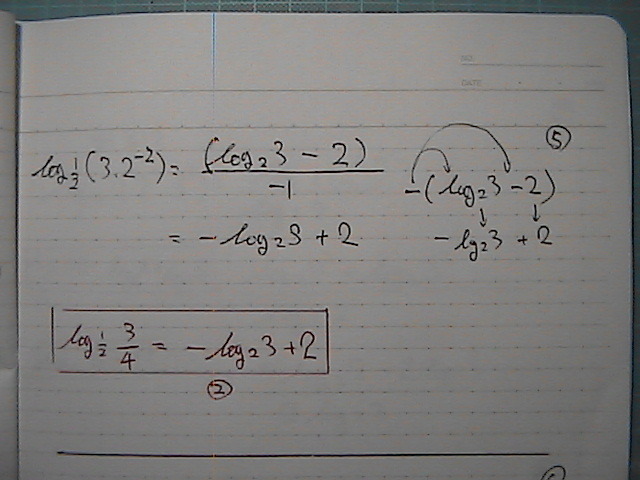 NO.
DATE
⑤
log½(3.2⁻²) = (log₂3 − 2) / −1
−(log₂3 − 2)
= −log₂3 + 2
−lg₂3 + 2
log½ 3/4 = −log₂3 + 2
②